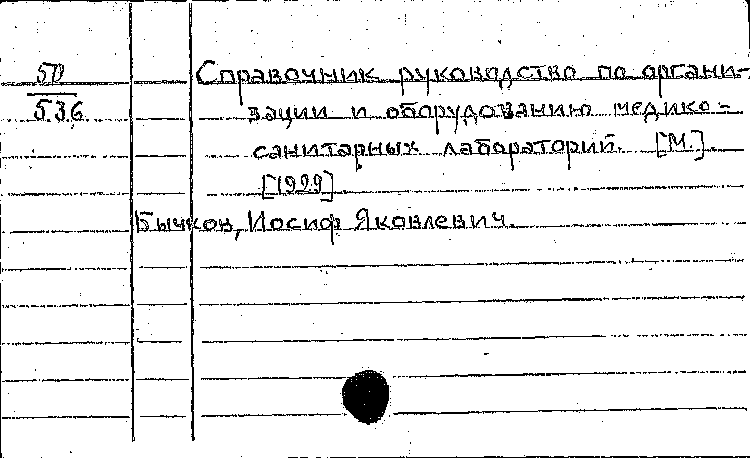 50
536
Справочник руководство по органи-
зации и оборудованию медико-
санитарных лабораторий. [М.]
[1929]
Бычков, Иосиф Яковлевич.